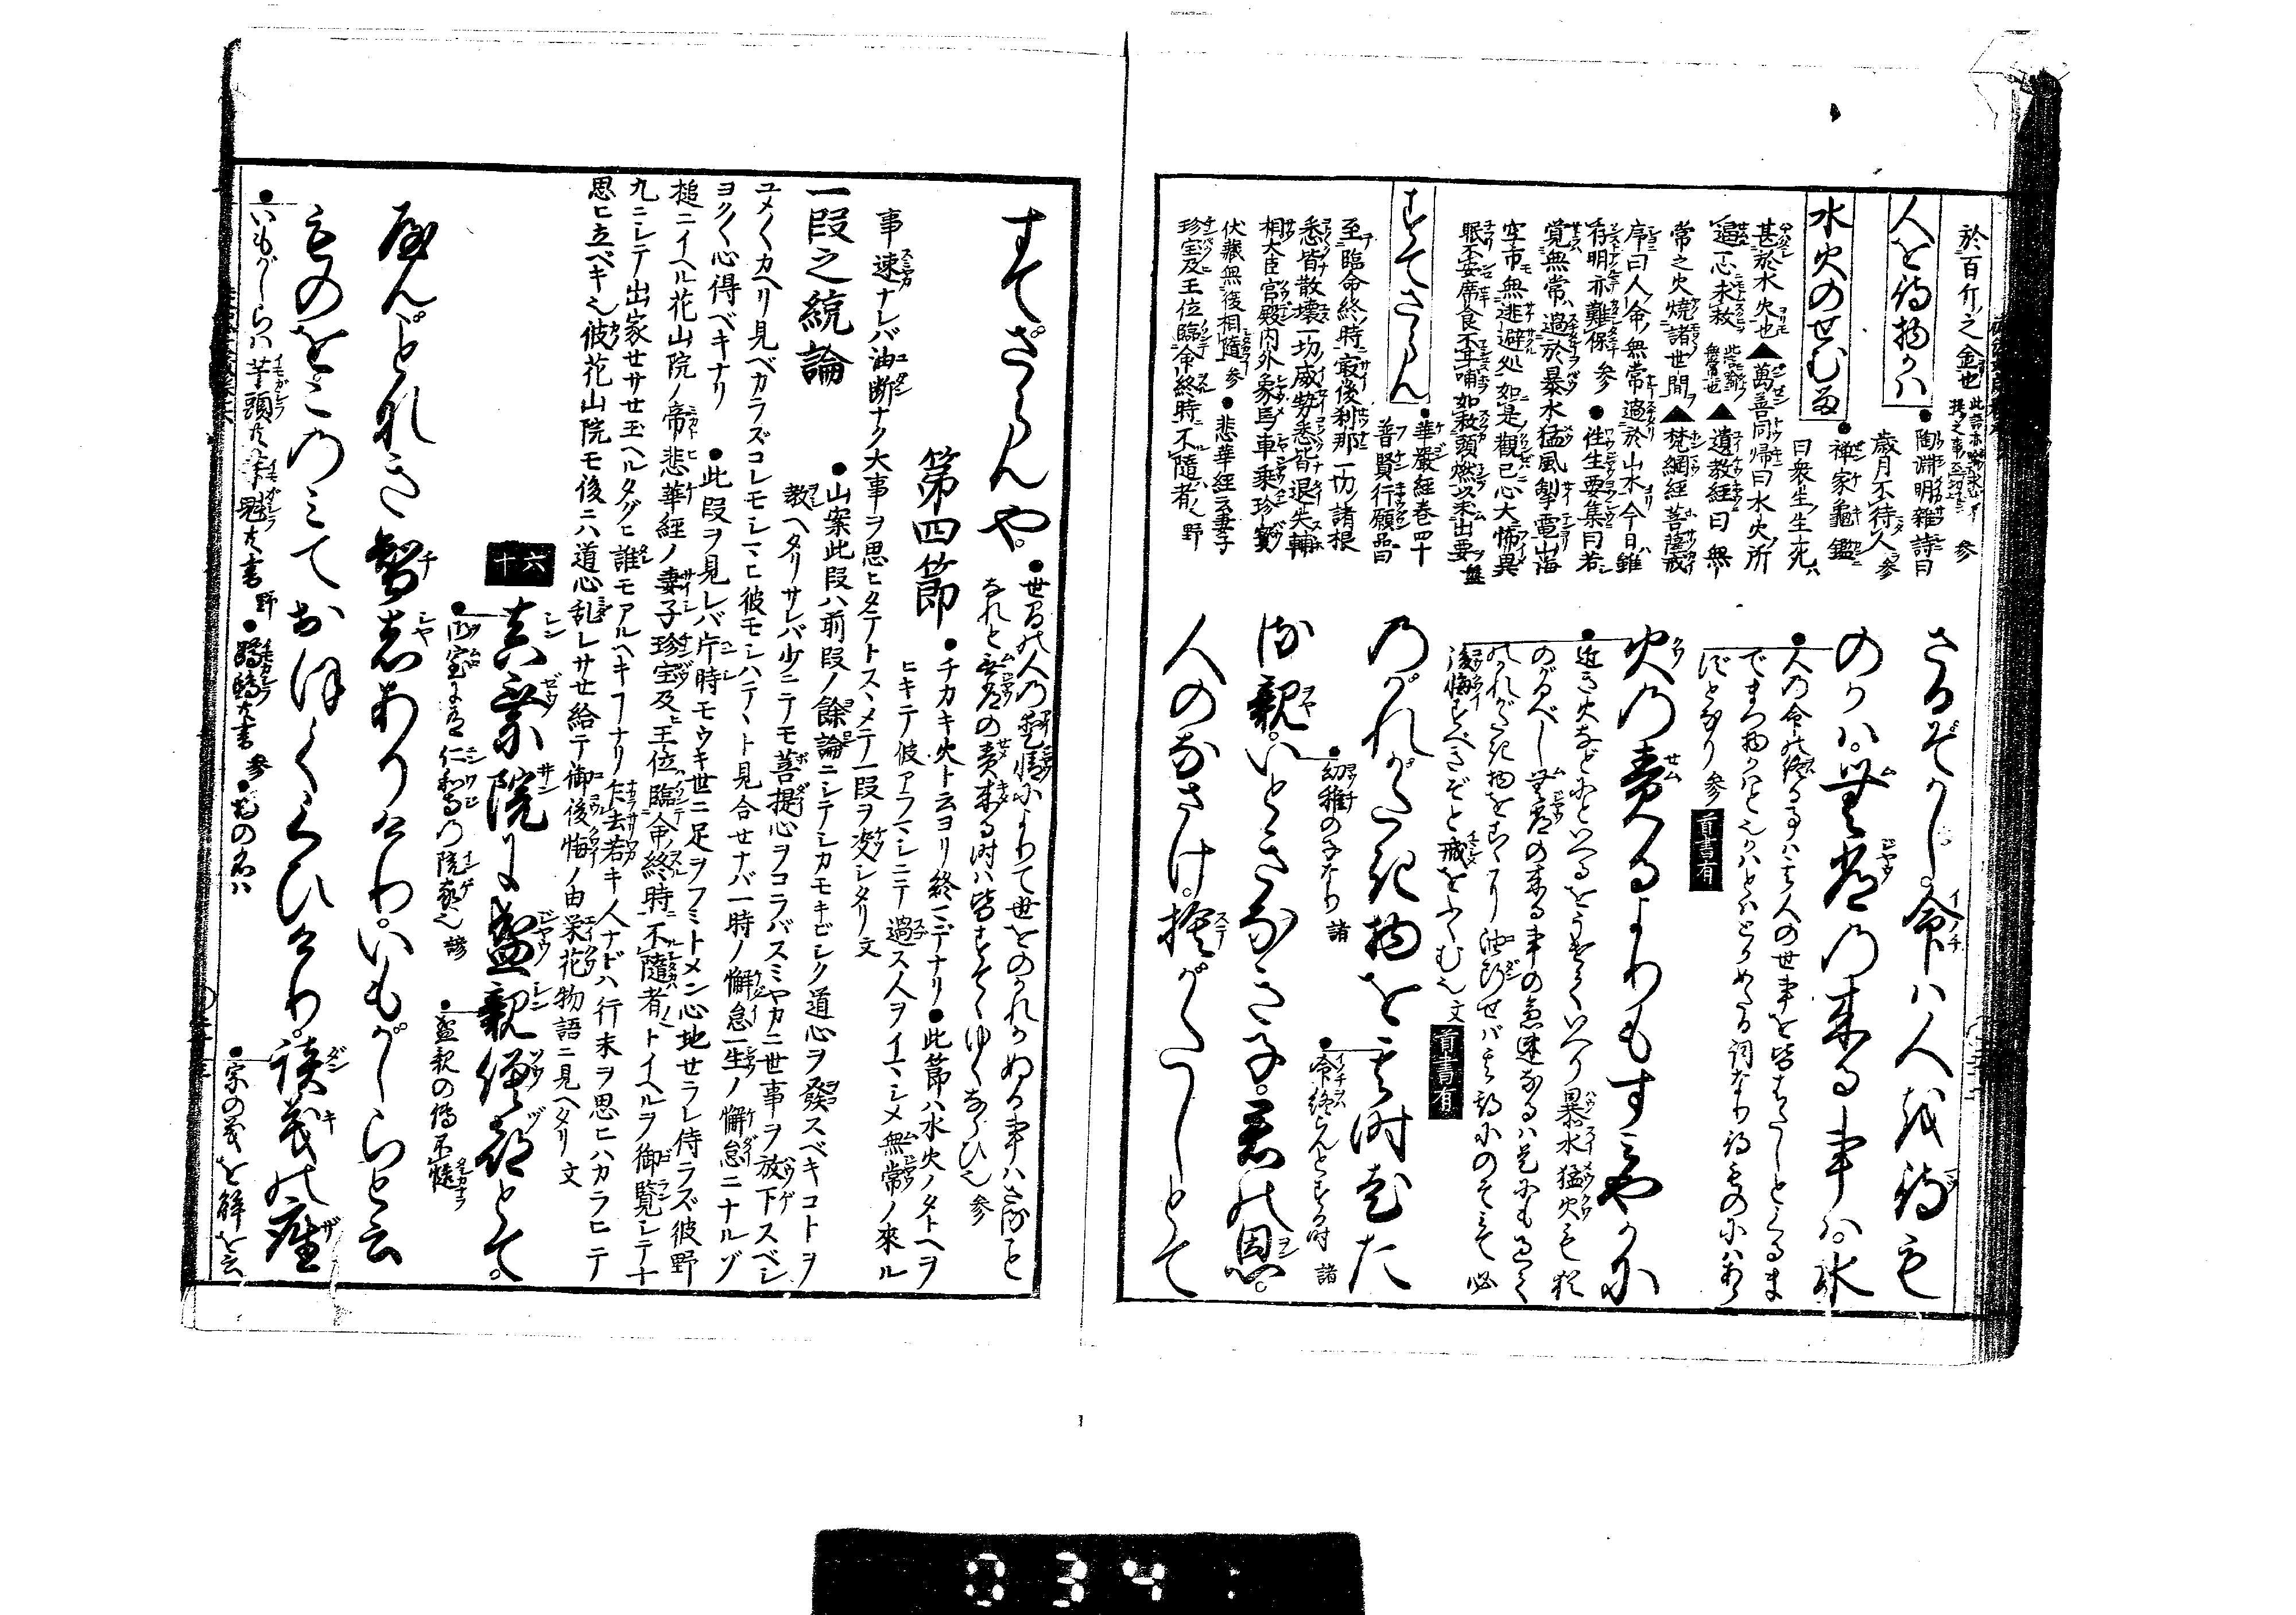 於百斤之金也
人を待物かハ
●陶淵明雑詩曰
歳月不待人 参
水火のせむる
●禅家亀鑑
曰衆生生死
甚於水火也▲萬善同帰曰水火ノ所
逼心未救 ▲遺教経曰無
常之火焼諸世間 ▲梵網経菩薩戒
序曰人命無常過於山水今日雖
存明亦難保 参 ●往生要集曰若
覚無常過於暴水猛風掣電山海
空市無逃避処如是觀已心大怖畏
眠不安席食不甘哺如救頭燃以求出要
すてさらん
●華嚴経巻四十
普賢行願品曰
至臨命終時最後刹那一切諸根
悉皆散壊一切威勢悉皆退失輔
相大臣宮殿内外象馬車乗珍寳
伏藏無復相隨 参 ●悲華経云妻子
珍宝及王位臨命終時不隨者 野
さるぞかし。命ハ人を待も
のかハ。無常の来る事ハ。水
●人の命の終る事ハ其人の世事を皆はたしとくるま
でまつ物かハと也かハとハとがめたる詞なり待ものにハあら
ずとなり 参 首書有
火の責るよりもすミやかに
●近き火などにといへるをうけていへり暴水猛火も猶
のがるべし無常の来る事の急速なるハ是にも過て
のかれがたき物をおこたり油断せバ其期にのぞミて必
後悔すべきぞと戒をふくむ也 文 首書有
のがれがたき物を其時老た
る親。いときなき子。君の恩。
●幼稚の子なり 諸
●命終らんとする時 諸
人のなさけ。捨がたしとて
すてざらんや。
●世間の人の愛情によりて世をのかれかぬる事ハさる事
なれと無常の責来る時ハ皆すてゝゆくならひ也 参
第四節
●チカキ火ト云ヨリ終マデナリ●此節ハ水火ノタトヘヲ
ヒキテ彼アラマシニテ過ス人ヲイマシメ無常ノ來ル
事速ナレバ油断ナク大事ヲ思ヒタテトスヽメテ一段ヲ凌シタリ 文
一段之統論
●山案此段ハ前段ノ餘論ニシテシカモキビシク道心ヲ發スベキコトヲ
教ヘタリサレバ少ニテモ菩提心ヲコラバスミヤカニ世事ヲ放下スベシ
ユメ〱カヘリ見ベカラズコレモシハテヽ彼モシハテヽト見合セナバ一時ノ懈怠一生ノ懈怠ニナルゾ
ヨク〱心得ベキナリ ●此段ヲ見レバ片時モウキ世ニ足ヲフミトメン心地セラレ侍ラズ彼野
槌ニイヘル花山院ノ帝悲華経ノ妻子珍宝及王位臨命終時不隨者トイヘルヲ御覧シテ十
九ニシテ出家セサセ玉ヘルタグヒ誰モアルヘキコトナリ乍去若キ人ナドハ行末ヲ思ヒハカラヒテ
思ヒ立ベキ也彼花山院モ後ニハ道心乱レサセ給テ御後悔ノ由栄花物語ニ見ヘタリ 文
六十
真乗院に盛親僧都とて。
●御室に有仁和寺の院家也 諺
●盛親の傳不慥
やんごとなき智者ありけり。いもがしらと云
ものをこのミておほくくひけり。談義の座
●いもがしらハ芋頭共芋魁共書 野 ●蹲鴟共書 参 ●物の名ハ
●宗の義を解を云
034